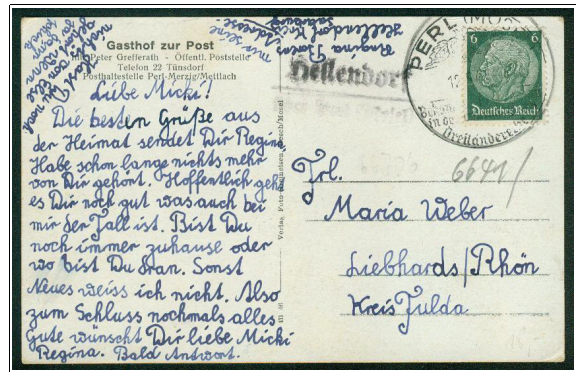 Gasthof zur Post
Peter Grefferath - Öffentl. Poststelle
Telefon 22 Tünsdorf
Posthaltestelle Perl-Merzig/Mettlach
Liebe Micki!
Die besten Grüße aus
der Heimat sendet Dir Regina
Habe schon lange nichts mehr
von Dir gehört. Hoffentlich geht
es Dir noch gut was auch bei
mir der Fall ist. Bist Du
noch immer zuhause oder
wo bist Du dran. Sonst
Neues weiss ich nicht. Also
zum Schluss nochmals alles
Gute wünscht Dir liebe Micki
Regina. Bald Antwort.
meine
Adresse:
Regina
Hellendorf Kreis
Saarburg
Hellendorf
PERL (MOSEL)
6 6
Deutsches Reich
Dreiländereck
6641/
Frl.
Maria Weber
Liebhards/Rhön
Kreis Fulda
Verlag